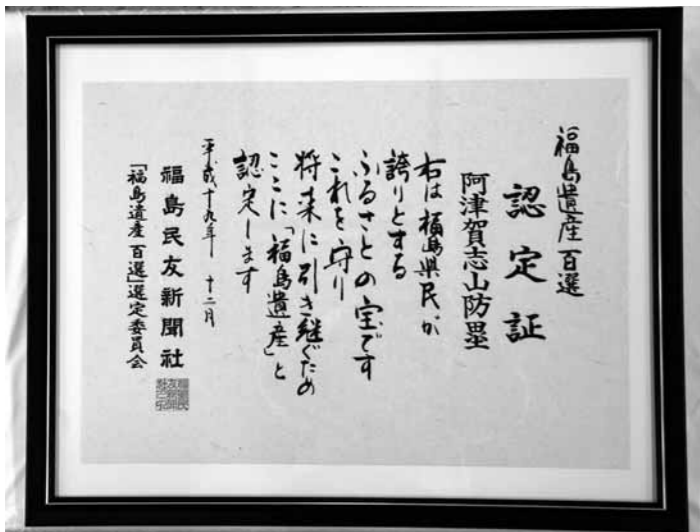 福島遺産百選
認定証
阿津賀志山防塁
右は福島県民が
誇りとする
ふるさとの宝です
これを守り
将来に引き継ぐため
ここに「福島遺産」と
認定します
平成十九年 十二月
福島民友新聞社
「福島遺産百選」選定委員会